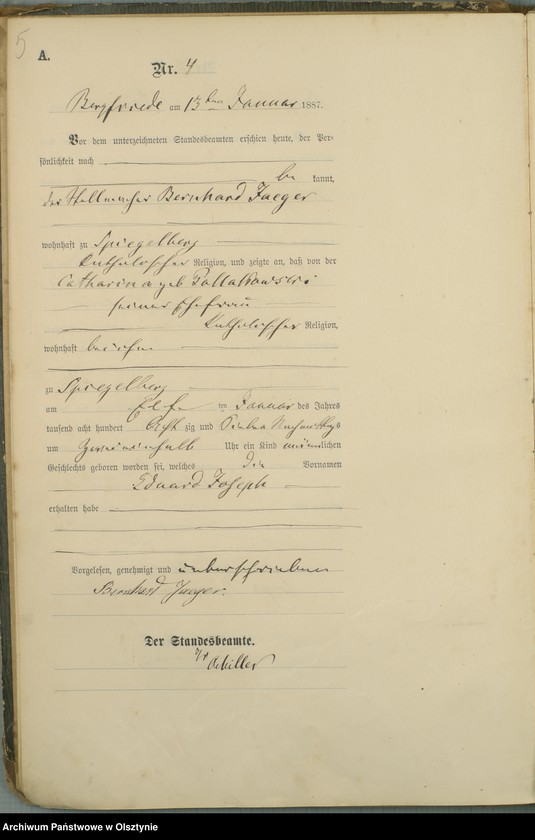 5
A.
Nr. 4
Bergfriede am 13ten Januar 1887.
Vor dem unterzeichneten Standesbeamten erschien heute, der Per-
sönlichkeit nach
be kannt,
der Stellmacher Bernhard Jaeger
wohnhaft zu Spiegelberg
katholischer Religion, und zeigte an, daß von der
Catharina geb
seiner Ehefrau
katholischer Religion,
wohnhaft bei ihm
zu Spiegelberg
am Elften ten Januar des Jahres
tausend acht hundert Acht zig und Sieben Nachmittags
um Uhr ein Kind männlichen
Geschlechts geboren worden sei, welches die Vornamen
Eduard Joseph
erhalten habe
Vorgelesen, genehmigt und unterschrieben
Bernhard Jaeger.
Der Standesbeamte.
Archiwum Państwowe w Olsztynie